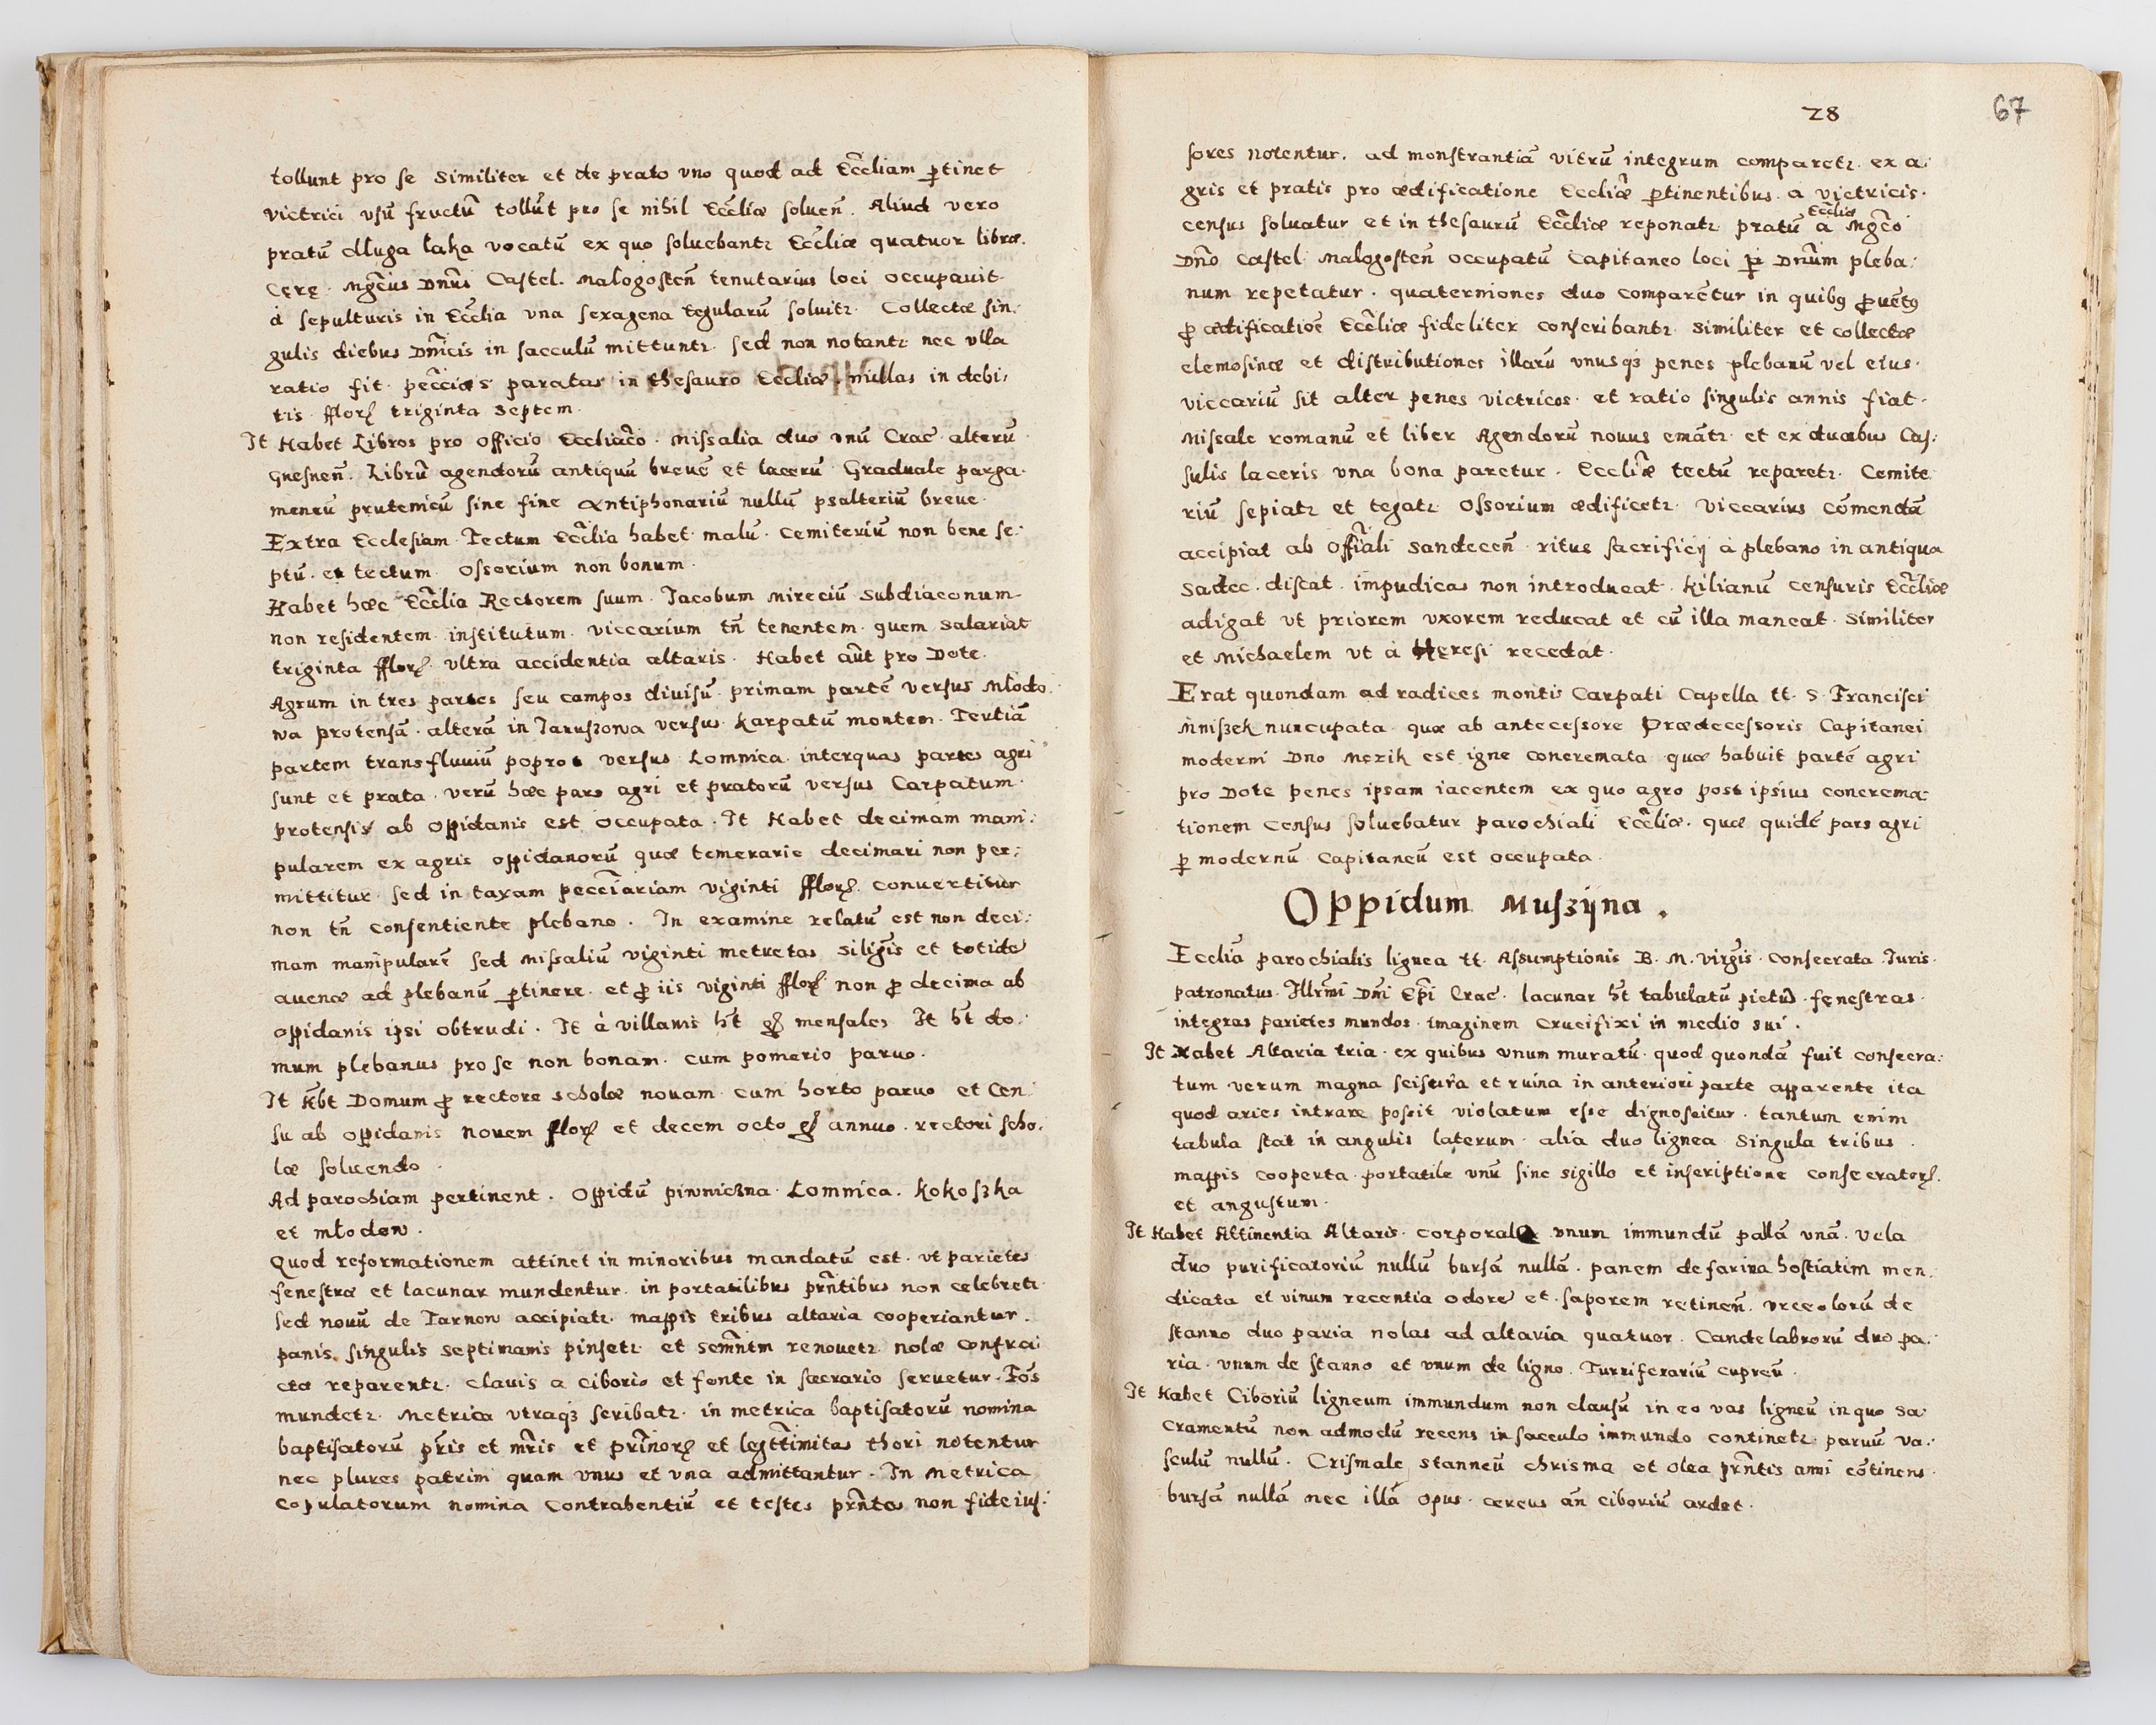 tollunt pro se similiter et de prato vno quod ad Eccliam ptinet
victrici vsũ fructũ tollũt pro se nihil Eccliæ soluen̄. Aliud vero
pratũ dluga laka vocatũ ex quo soluebantr Eccliæ quatuor libræ.
Cęrę. Mgcus Dnus Castel. Malogosten̄ tenutarius loci occupauit.
à sepulturis in Ecclia vna sexagena tegularũ soluitr. Collectæ sin:
gulis diebus Dnicis in sacculũ mittuntr. sed non notantr nec vlla
ratio fit. peccias paratas in thesauro Eccliæ. nullas in debi:
tis fflor triginta septem.
It Habet Libros pro officio Eccliaco. Missalia duo vnũ Crac. alterũ
Gnesnen̄. Librũ agendorũ antiquũ breuē et lacerũ Graduale parga:
meneũ prutenicũ sine fine Antiphonariũ nullũ psalteriũ breue.
Extra Ecclesiam Tectum Ecclia habet malũ. Cemiteriũ non bene se:
ptũ et tectum. Ossorium non bonum.
Habet hæc Ecclia Rectorem suum Jacobum Mireciũ Subdiaconum
non residentem institutum. viccarium tn̄ tenentem quem salariat
triginta fflor. vltra accidentia altaris. Habet aũt pro Dote.
Agrum in tres partes seu campos diuisũ. primam partē versus Młodo:
wa protensã. alterã in Januszowa versus Karpatũ montem. Tertiã
partem trans fluuiũ poprot versus Łomnica. interquas partes agri
sunt et prata. verũ hæc pars agri et pratorũ versus Carpatum
protensis ab oppidanis est occupata. It Habet decimam mani:
pularem ex agris oppidanorũ quæ temerarie decimari non per:
mittitur. sed in taxam pecciariam viginti fflor. conuertitur
non tn̄ consentiente plebano. In examine relatũ est non deci:
mam manipularē sed Missaliũ viginti metretas siliginis et totidē
auenæ ad plebanũ ptinere. et p iis viginti fflor non p decima ab
oppidanis ipsi obtrudi. It à villanis h̄t gr mensales It h̄t do:
mum plebanus pro se non bonam. cum pomerio paruo.
It Hbt Domum p rectore scholæ nouam cum horto paruo et Cen:
su ab oppidanis nouem fflor et decem octo gr annuo. rectori scho:
læ soluendo.
Ad parochiam pertinent. Oppidũ piwniczna. Łomnica. Kokoszka
et młodow.
Quod reformationem attinet in minoribus mandatũ est. vt parietes
fenestræ et lacunar mundentur. in portatilibus prn̄tibus non celebretr.
sed nouũ de Tarnow accipiatr. mappis tribus altaria cooperiantur.
panis singulis septimanis pinsetr. et Semn̄tm renouetr. nolæ confra:
ctæ reparentr. clauis a ciborio et fonte in sacrario seruetur. Fōs
mundetr. Metrica vtraq₃ scribatr. in metrica baptisatorũ nomina
baptisatorũ pr̄is et mr̄is et prinor et legittimitas thori notentur
nec plures patrini quam vnus et vna admittantur. In Metrica
copulatorum nomina contrahentiũ et testes prn̄tes non fideius:
28
67
sores notentur. ad monstrantiã vitrũ integrum comparetr. ex a:
gris et pratis pro ædificatione Eccliæ ptinentibus. a victricis.
census soluatur et in thesaurũ Eccliæ reponatr. pratũ Eccliæ a Mgco
Dno Castel. Malogosten̄ occupatũ Capitaneo loci p Dnum pleba:
num repetatur. quaterniones duo comparētur in quibg puētg
p ædificatiōe Eccliæ fideliter conscribantr. similiter et collectæ
elemosinæ et distributiones illarũ vnusq₃ penes plebanũ vel eius.
viccariũ sit alter penes victricos. et ratio singulis annis fiat.
Missale romanũ et liber Agendorũ nouus emãtr. et ex duabus Cas:
sulis laceris vna bona paretur. Eccliæ tectũ reparetr. Cemite:
riũ sepiatr et tegatr. Ossorium ædificetr. Viccarius cōmendã
accipiat ab Officiali Sandecen̄. ritus sacrificij à plebano in antiqua
Sadec. discat. impudicas non introducat. Kilianũ censuris Eccliæ
adigat vt priorem vxorem reducat et cũ illa maneat. similiter
et Michaelem vt à Hęresi recedat.
Erat quondam ad radices montis Carpati Capella tt. S. Francisci
Mniszek nuncupata quæ ab antecessore Prædecessoris Capitanei
moderni Dno Merik est igne concremata quæ habuit partē agri
pro Dote penes ipsam iacentem ex quo agro post ipsius concrema:
tionem census soluebatur parochiali Eccliæ. quæ quidē pars agri
p modernũ Capitaneũ est occupata.
Oppidum Muszijna.
Ecclia parochialis lignea tt. Assumptionis B. M. Virgis. consecrata. Juris.
patronatus. Illrmi Dni Epi Crac. lacunar h̄t tabulatũ pictũ. fenestras.
integras parietes mundos. imaginem Crucifixi in medio sui.
It Habet Altaria tria. ex quibus vnum muratũ. quod quondã fuit consecra:
tum verum magna scisura et ruina in anteriori parte apparente ita
quod aries intrare possit violatum esse dignoscitur. tantum enim
tabula stat in angulis laterum. alia duo lignea singula tribus.
mappis cooperta. portatile vnũ sine sigillo et inscriptione consecrator.
et angustum.
It Habet Attinentia Altaris. corporale vnum immundũ pallã vnã. vela
duo purificatoriũ nullũ bursã nullã. panem de farina hostiatim men:
dicata et vinum recentia odorē et saporem retinen̄. vrceolorũ de
stanno duo paria nolas ad altaria quatuor. Candelabrorũ duo pa:
ria. vnum de stanno et vnum de ligno. Turriferariũ cupreũ.
It Habet Ciboriũ ligneum immundum non clausũ in eo vas ligneũ in quo Sa:
cramentũ non admodũ recens in sacculo immundo continetr. paruũ va:
sculũ nullũ. Crismale stanneũ chrisma et olea prn̄tis anni cōtinens.
bursã nullã nec illã opus. cereus an̄ ciboriũ ardet.